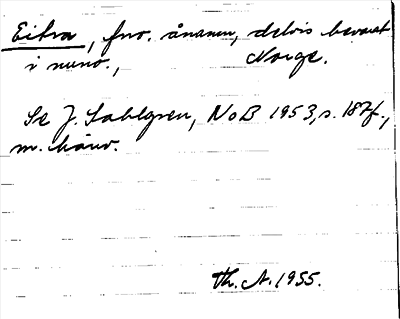 Eikra, fno. ånamn, delvis bevarat
i nuno., Norge.
Se J. Sahlgren, NoB 1953, s. 187f.,
m. hänv.
Th. A. 1955.